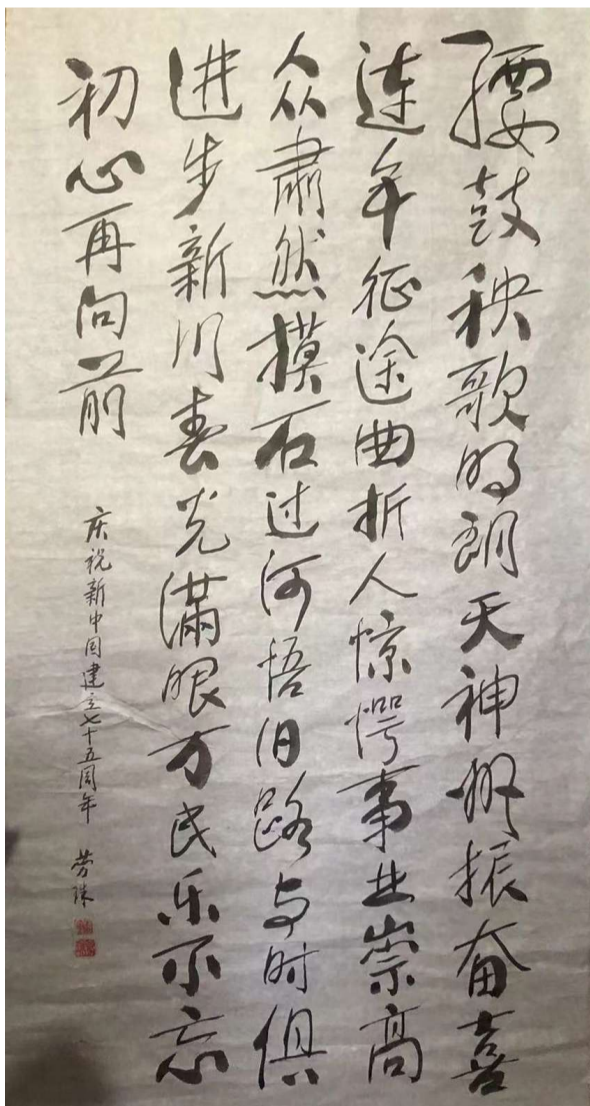 腰鼓秧歌明朗天神州振奋喜
连年征途曲折人惊愕事业崇高
人众肃然摸石过河悟旧路与时俱
进步新川春光满眼万民乐不忘
初心再向前
庆祝新中国建立七十五周年 劳珠